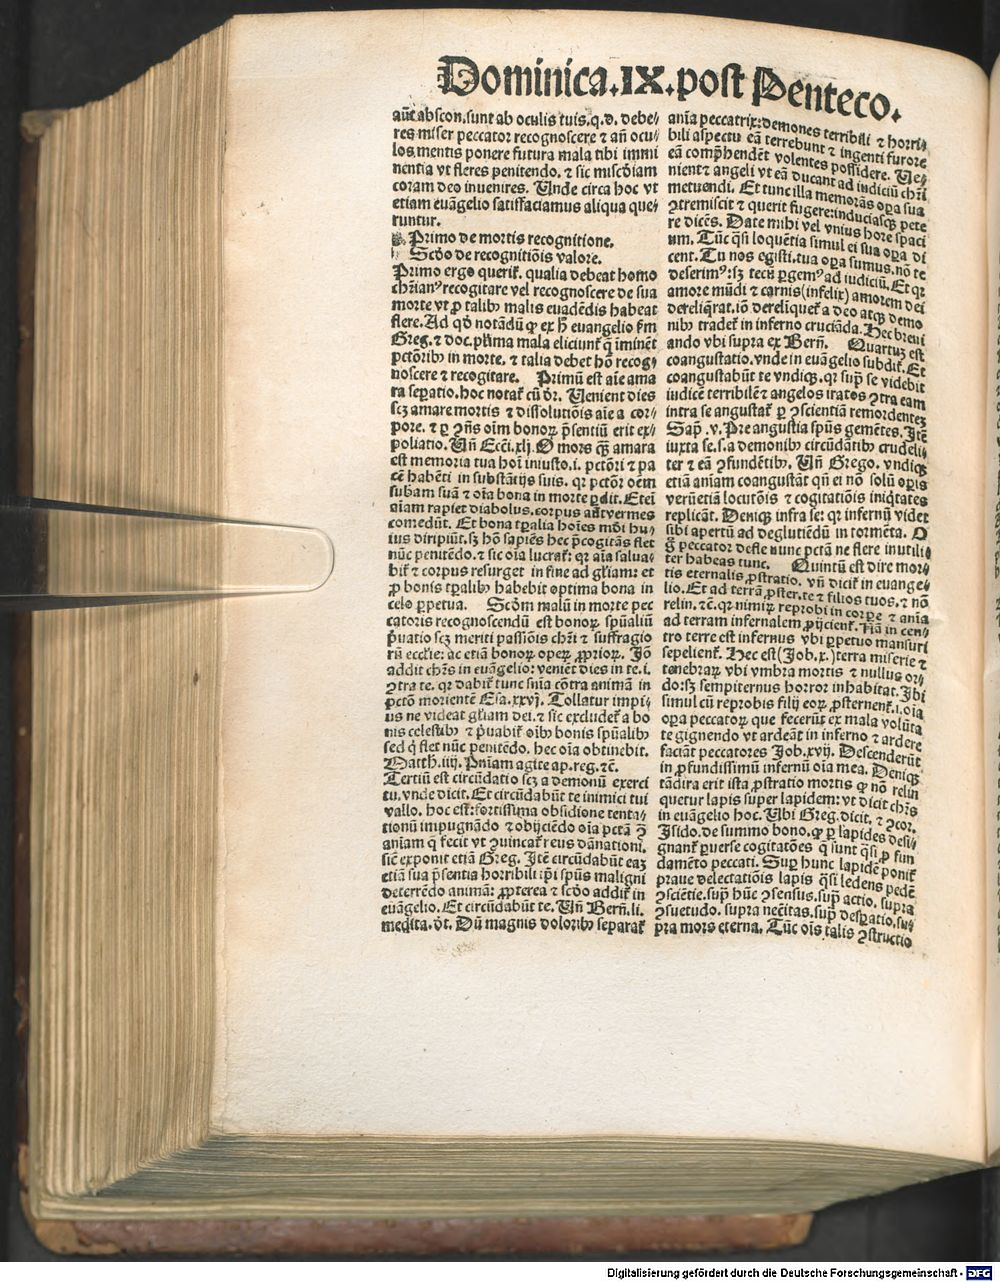 Dominica.IX.post Penteco.
aut̄ abscon.sunt ab oculis tuis.q.d. debe⸗
res miser peccator recognoscere ⁊ an̄ ocu⸗
los mentis ponere futura mala tibi immi
nentia vt fleres penitendo. ⁊ sic miscd̄iam
coram deo inuenires. Unde circa hoc vt
etiam euāgelio satisfaciamus aliqua que⸗
runtur.
Primo de mortis recognitione.
Scd̄o de recognitiōis valore.
Primo ergo querit᷑. qualia debeat homo
chr̄ianꝰ recogitare vel recognoscere de sua
morte vt ꝓ talibꝰ malis euadēdis habeat
flere. Ad qd̄ notādū ꝙ ex h̄ euangelio ẜm
Greg. ⁊ doc. plr̄ima mala eliciunt᷑ q̄ iminēt
pctōribꝰ in morte. ⁊ talia debet hō recog⸗
noscere ⁊ recogitare. Primū est aīe ama
ra seꝑatio. hoc notat᷑ cū dr̄. Uenient dies
scꝫ amare mortis ⁊ dissolutiōis aīe a cor⸗
pore. ⁊ ꝑ ꝯn̄s oīm bonoꝝ p̄sentiū erit ex⸗
poliatio. Un̄ Ecci.xlj. O mors q̄ꝫ amara
est memoria tua hoī iniusto.i. pctōri ⁊ pa
cē habēti in substātijs suis. qꝛ pctōr oēm
subam suā ⁊ oīa bona in morte ꝑdit. Etem̄
aīam rapiet diabolus. corpus aūt vermes
comedūt. Et bona tꝑalia hoīes mōi hu⸗
ius diripiūt. sꝫ hō sapiēs hec p̄cogitās flet
nūc penitēdo. ⁊ sic oīa lucrat᷑: qꝛ aīa salua⸗
bit᷑ ⁊ corpus resurget in fine ad gl̄iam: et
ꝓ bonis tꝑalibꝰ habebit optima bona in
celo ꝑpetua. Scd̄m malū in morte pec
catoris recognoscendū est bonoꝝ spūaliū
p̄uatio scꝫ meriti passiōis chr̄i ⁊ suffragio
rū eccl̄ie: ac etiā bonoꝝ opeꝝ ꝓprioꝝ. Iō
addit chr̄s in euāgelio: veniēt dies in te.i.
ꝯtra te. qꝛ dabit᷑ tunc snīa cōtra animā in
pctō morientē Esa.xxvj. Tollatur impi⸗
us ne videat gl̄iam dei. ⁊ sic excludet᷑ a bo
nis celestibꝰ ⁊ p̄uabit᷑ oībꝰ bonis spūalibꝰ
sed q̄ flet nūc penitēdo. hec oīa obtinebit.
Matth.iiij. Pn̄iam agite ap.reg.⁊c̄.
Tertiū est circūdatio scꝫ a demonū exerci
tu. vnde dicit. Et circūdabūt te inimici tui
vallo. hoc est: fortissima obsidione tenta⸗
tionū impugnādo ⁊ obijciēdo oīa pctā ꝯ̄
aniam q̄ fecit vt ꝯuincat᷑ reus dānationi.
sic̄ exponit etiā Greg. Itē circūdabūt eaꝫ
etiā sua p̄sentia horribili ip̄i spūs maligni
deterrēdo animā: ꝓpterea ⁊ scd̄o addit᷑ in
euāgelio. Et circūdabūt te. Un̄ Bern̄.li.
medita. dt̄. Dū magnis doloribꝰ separat᷑
anīa peccatrix: demones terribili ⁊ horri⸗
bili aspectu eā terrebunt ⁊ ingenti furore
eā comp̄hendēt volentes possidere. Ue⸗
nient ⁊ angeli vt eā ducant ad iudiciū chr̄i
metuendi. Et tunc illa memorās oꝑa sua
ꝯtremiscit ⁊ querit fugere: inducias​qꝫ pete
re dicēs. Date mihi vel vnius hore spaci
um. Tūc q̄si loquētia simul ei sua oꝑa di
cent. Tu nos egisti. tua oꝑa sumus. nō te
deserimꝰ: sꝫ tecū ꝑgemꝰ ad iudiciū. Et qꝛ
amore mūdi ⁊ carnis (infelix) amorem dei
dereliq̄rat. iō derelinquet᷑ a deo atqꝫ demo
nibꝰ tradet᷑ in inferno cruciāda. Hec breui
ando vbi supra ex Bern̄. Quartuꝫ est
coangustatio. vnde in euāgelio subdit᷑. Et
coangustabūt te vndiqꝫ. qꝛ supra se videbit
iudicē terribilē ⁊ angelos iratos ꝯtra eam
intra se angustat᷑ ꝑ ꝯscientiā remordenteꝫ
Sap̄.v. Pre angustia spūs gemētes. Itē
iuxta se.s. a demonibꝰ circūdātibꝰ crudeli⸗
ter ⁊ eā ꝯfundētibꝰ. Un̄ Grego. vndiqꝫ
etiā aniam coangustāt qn̄ ei nō solū oꝑis
verūetiā locutōis ⁊ cogitatiōis iniq̄tates
replicāt. Deniqꝫ infra se: qꝛ infernū videt
sibi apertū ad deglutiēdū in tormēta. O
ḡ peccator defle nunc pctā ne flere inutili⸗
ter habeas tunc. Quintū est dire mor⸗
tis eternalis ꝓstratio. vn̄ dicit᷑ in euange⸗
lio. Et ad terrā ꝓster. te ⁊ filios tuos. ⁊ nō
relin. ⁊c̄. qꝛ nimiꝝ reprobi in corpe ⁊ anīa
ad terram infernalem ꝓijcient᷑. Nā in cen⸗
tro terre est infernus vbi ꝑpetuo mansuri
sepelient᷑. Hec est (Job.x.) terra miserie ⁊
tenebraꝝ vbi vmbra mortis ⁊ nullus or⸗
do: sꝫ sempiternus horror inhabitat. Ibi
simul cū reprobis filij eoꝝ ꝓsternent᷑.i. oīa
oꝑa peccatoꝝ que fecerūt ex mala volūta
te gignendo vt ardeāt in inferno ⁊ ardere
faciāt peccatores Job.xvij. Descenderūt
in ꝓfundissimū infernū oīa mea. Deniqꝫ
tādira erit ista ꝓstratio mortis ꝙ nō relin
quetur lapis super lapidem: vt dicit chr̄s
in euāgelio hoc. Ubi Greg. dicit. ⁊ ꝯcor.
Isido. de summo bono. ꝙ ꝑ lapides desi⸗
gnant᷑ ꝑuerse cogitatōes q̄ sunt q̄si ꝓ fun
damēto peccati. Suꝑ hunc lapidē ponit᷑
praue delectatiōis lapis q̄si ledens pedē
ꝯsciētie. sup̄ hūc ꝯsensus. sup̄ actio. supra
ꝯsuetudo. supra nec̄itas. sup̄ desꝑatio. su⸗
pra mors eterna. Tūc oīs talis ꝯstructio
Digitalisierung gefördert durch die Deutsche Forschungsgemeinschaft - DFG